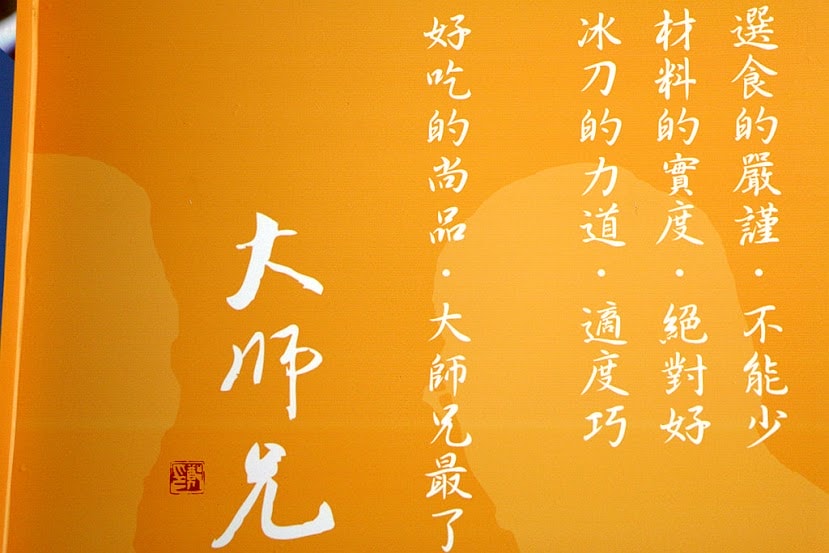 選食的嚴謹·不能少
材料的實度·絕對好
冰刀的力道·適度巧
好吃的尚品·大師兄最了
大師兄